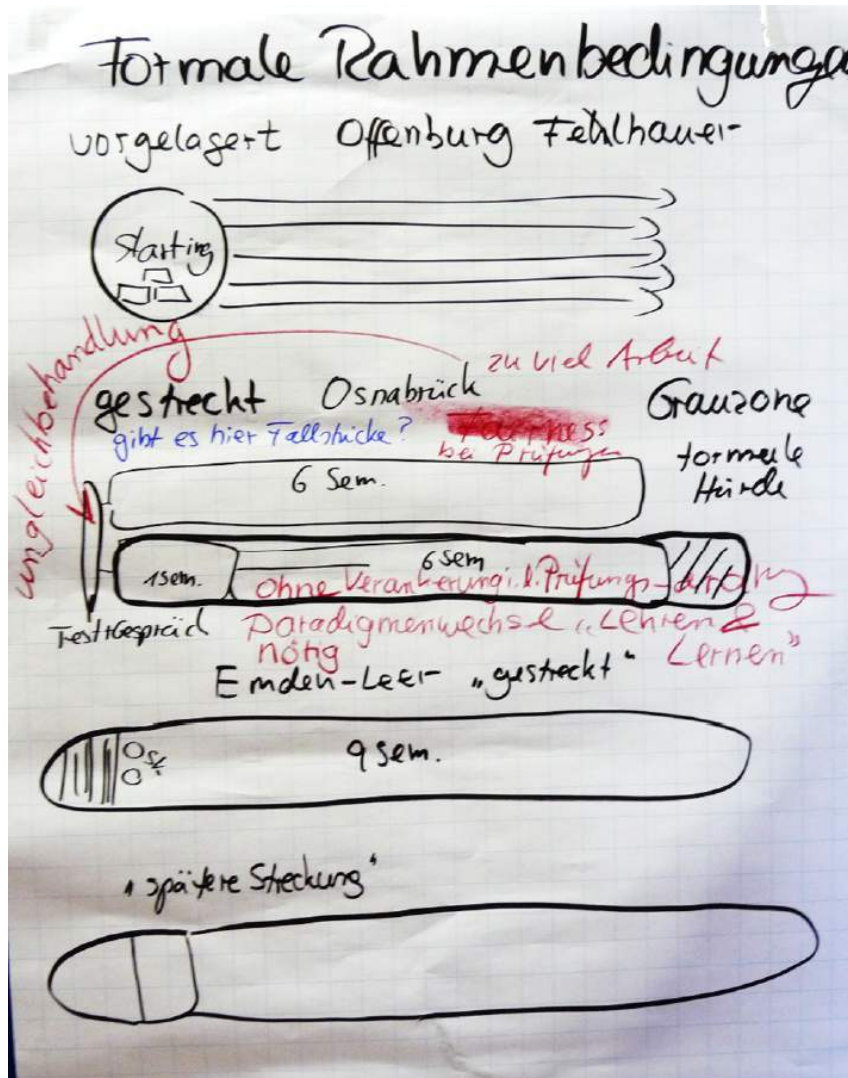 Formale Rahmenbedingungen
vorgelagert Offenburg Fehlhauer
Starting
ungleichbehandlung
zu viel Arbeit
gestreckt Osnabrück Grauzone
gibt es hier Fallstricke? Fairness
bei Prüfungen
formale
Hürde
6 Sem.
1 Sem. 6 Sem
ohne Verankerung i. d. Prüfungs-
Test+Gespräch Paradigmenwechsel „Lehren &
nötig Lernen"
Emden-Leer „gestreckt"
9 Sem.
„spätere Streckung"